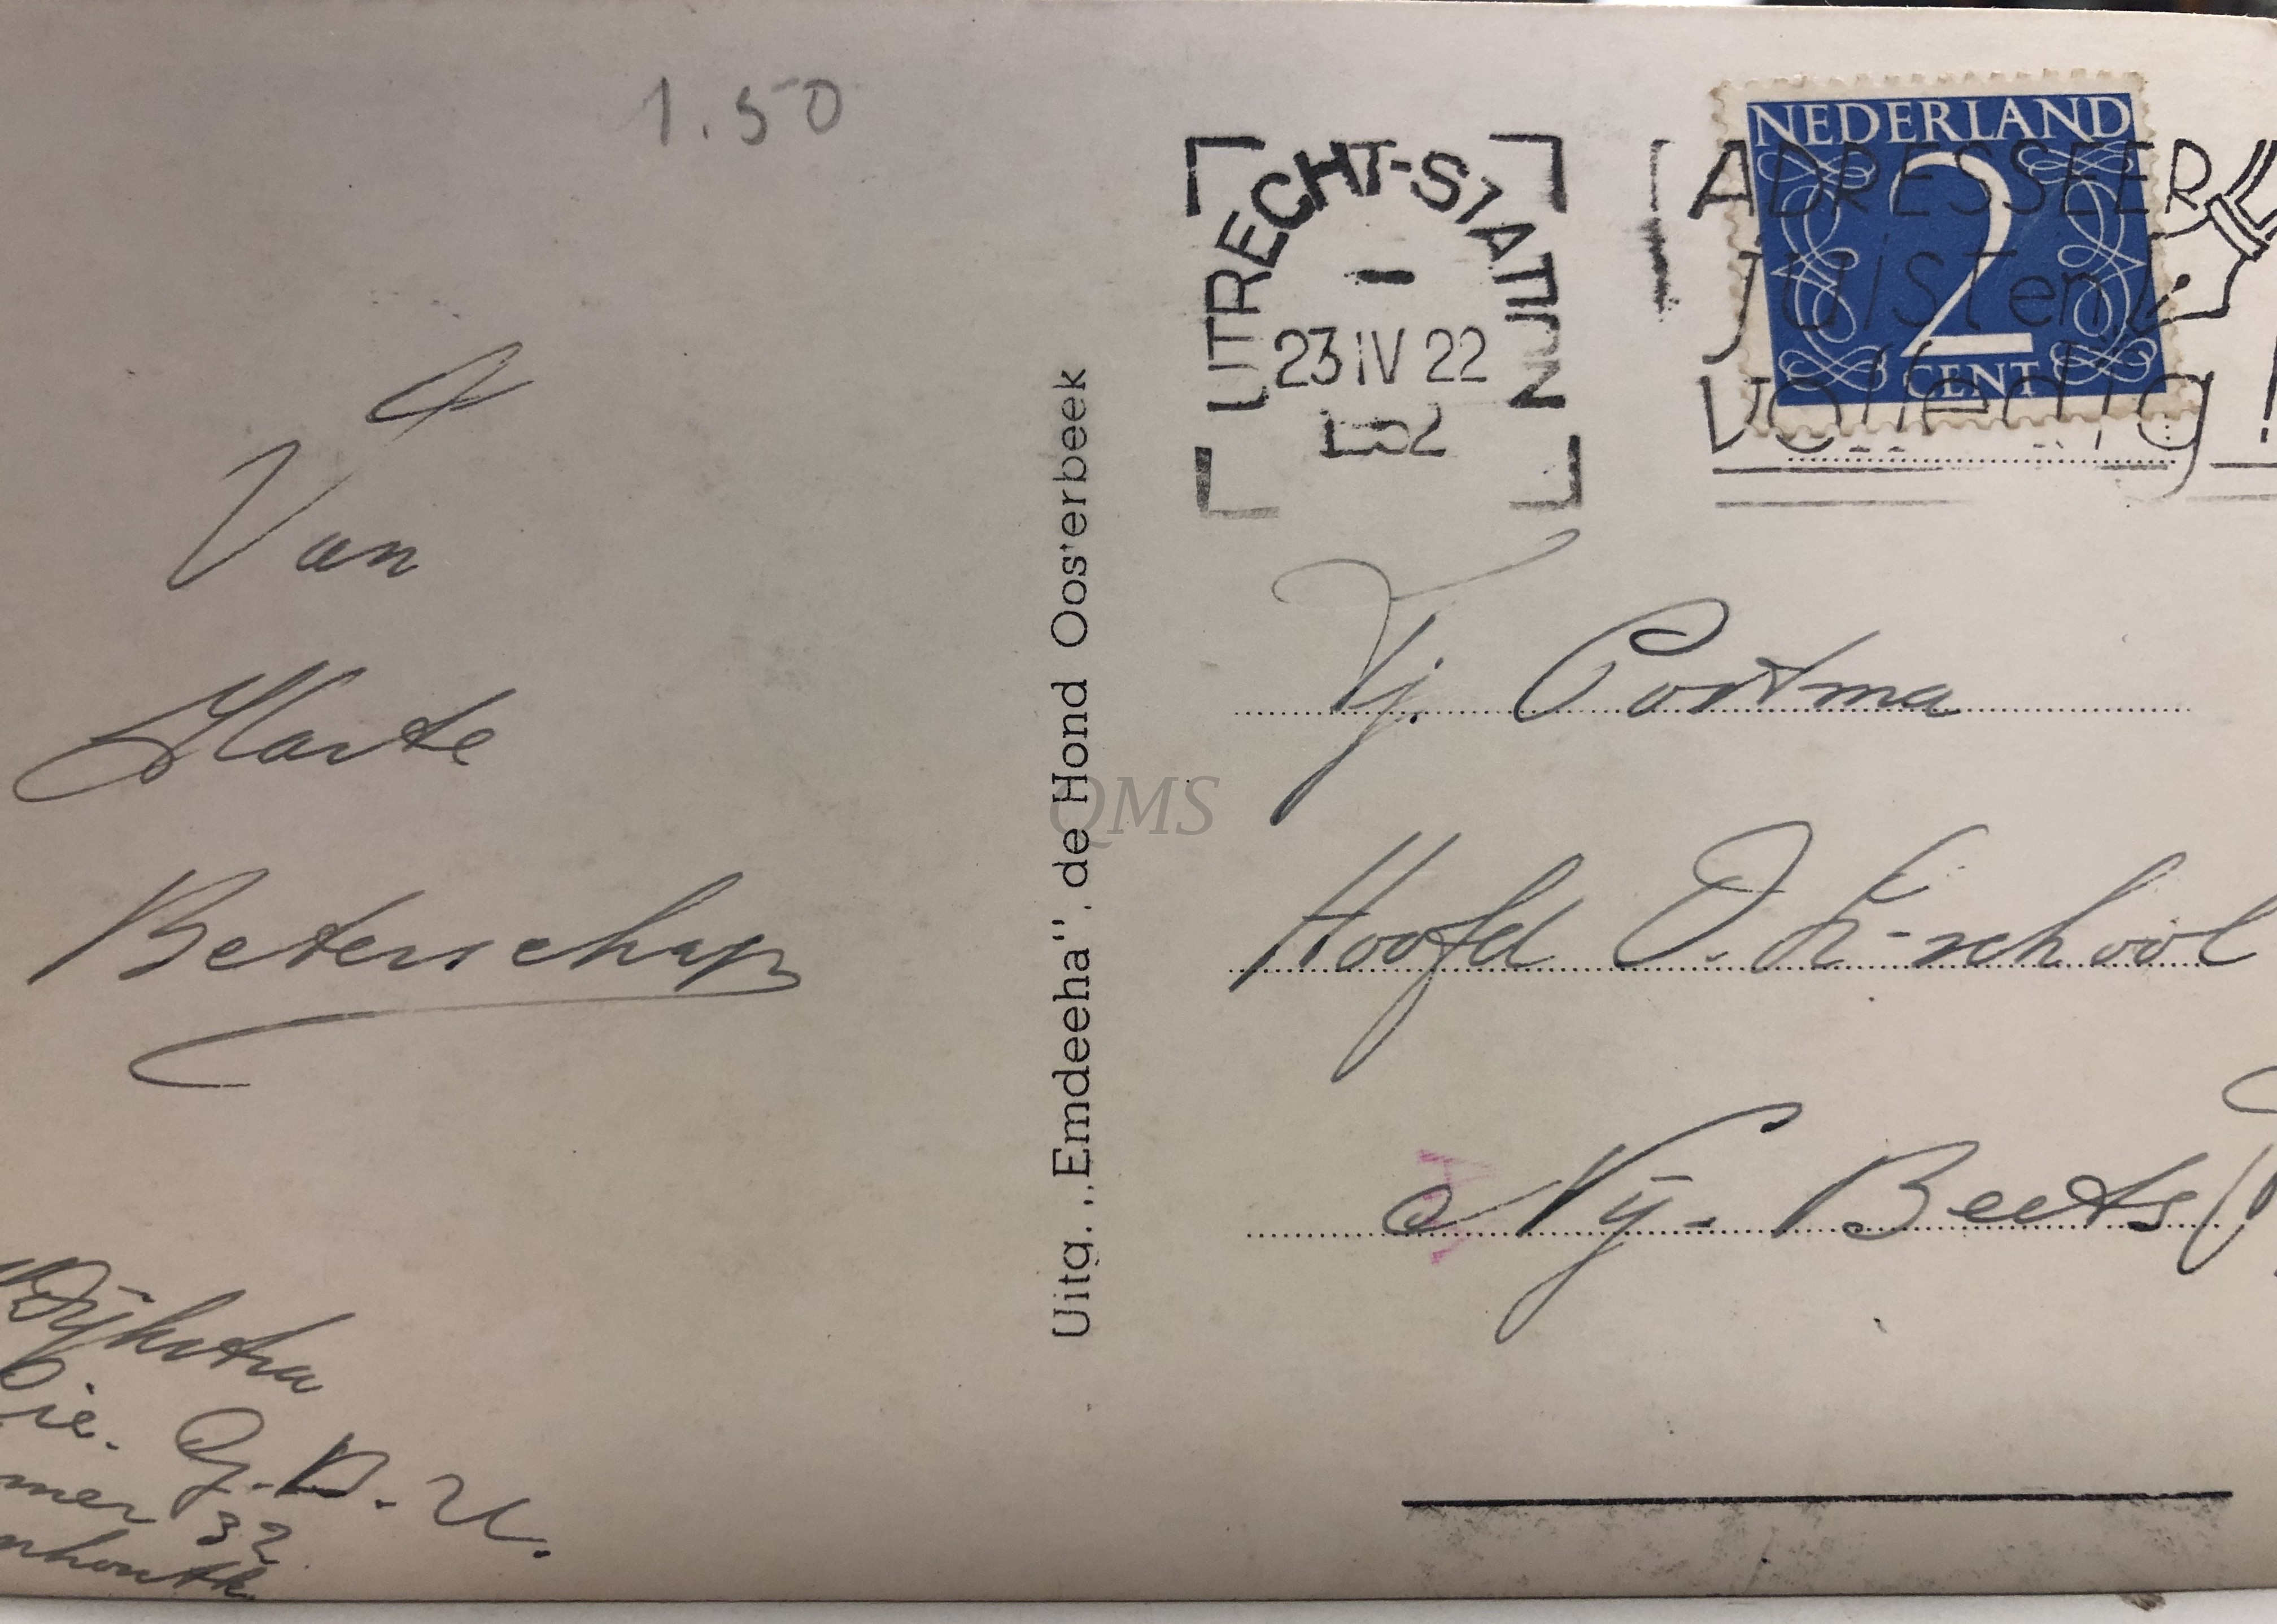 1.50
Van
Harte
Beterschap
Dijkstra
ie. G.D.U.
mer 32
nhoutk
Uitg. ,,Emdeeha'', de Hond Oosterbeek
QMS
UTRECHT-STATION
23 IV 22
NEDERLAND
2
CENT
ADRESSEER
juist en
volledig!
Tj. Postma
Hoofd O.L-school
Nij-Beets